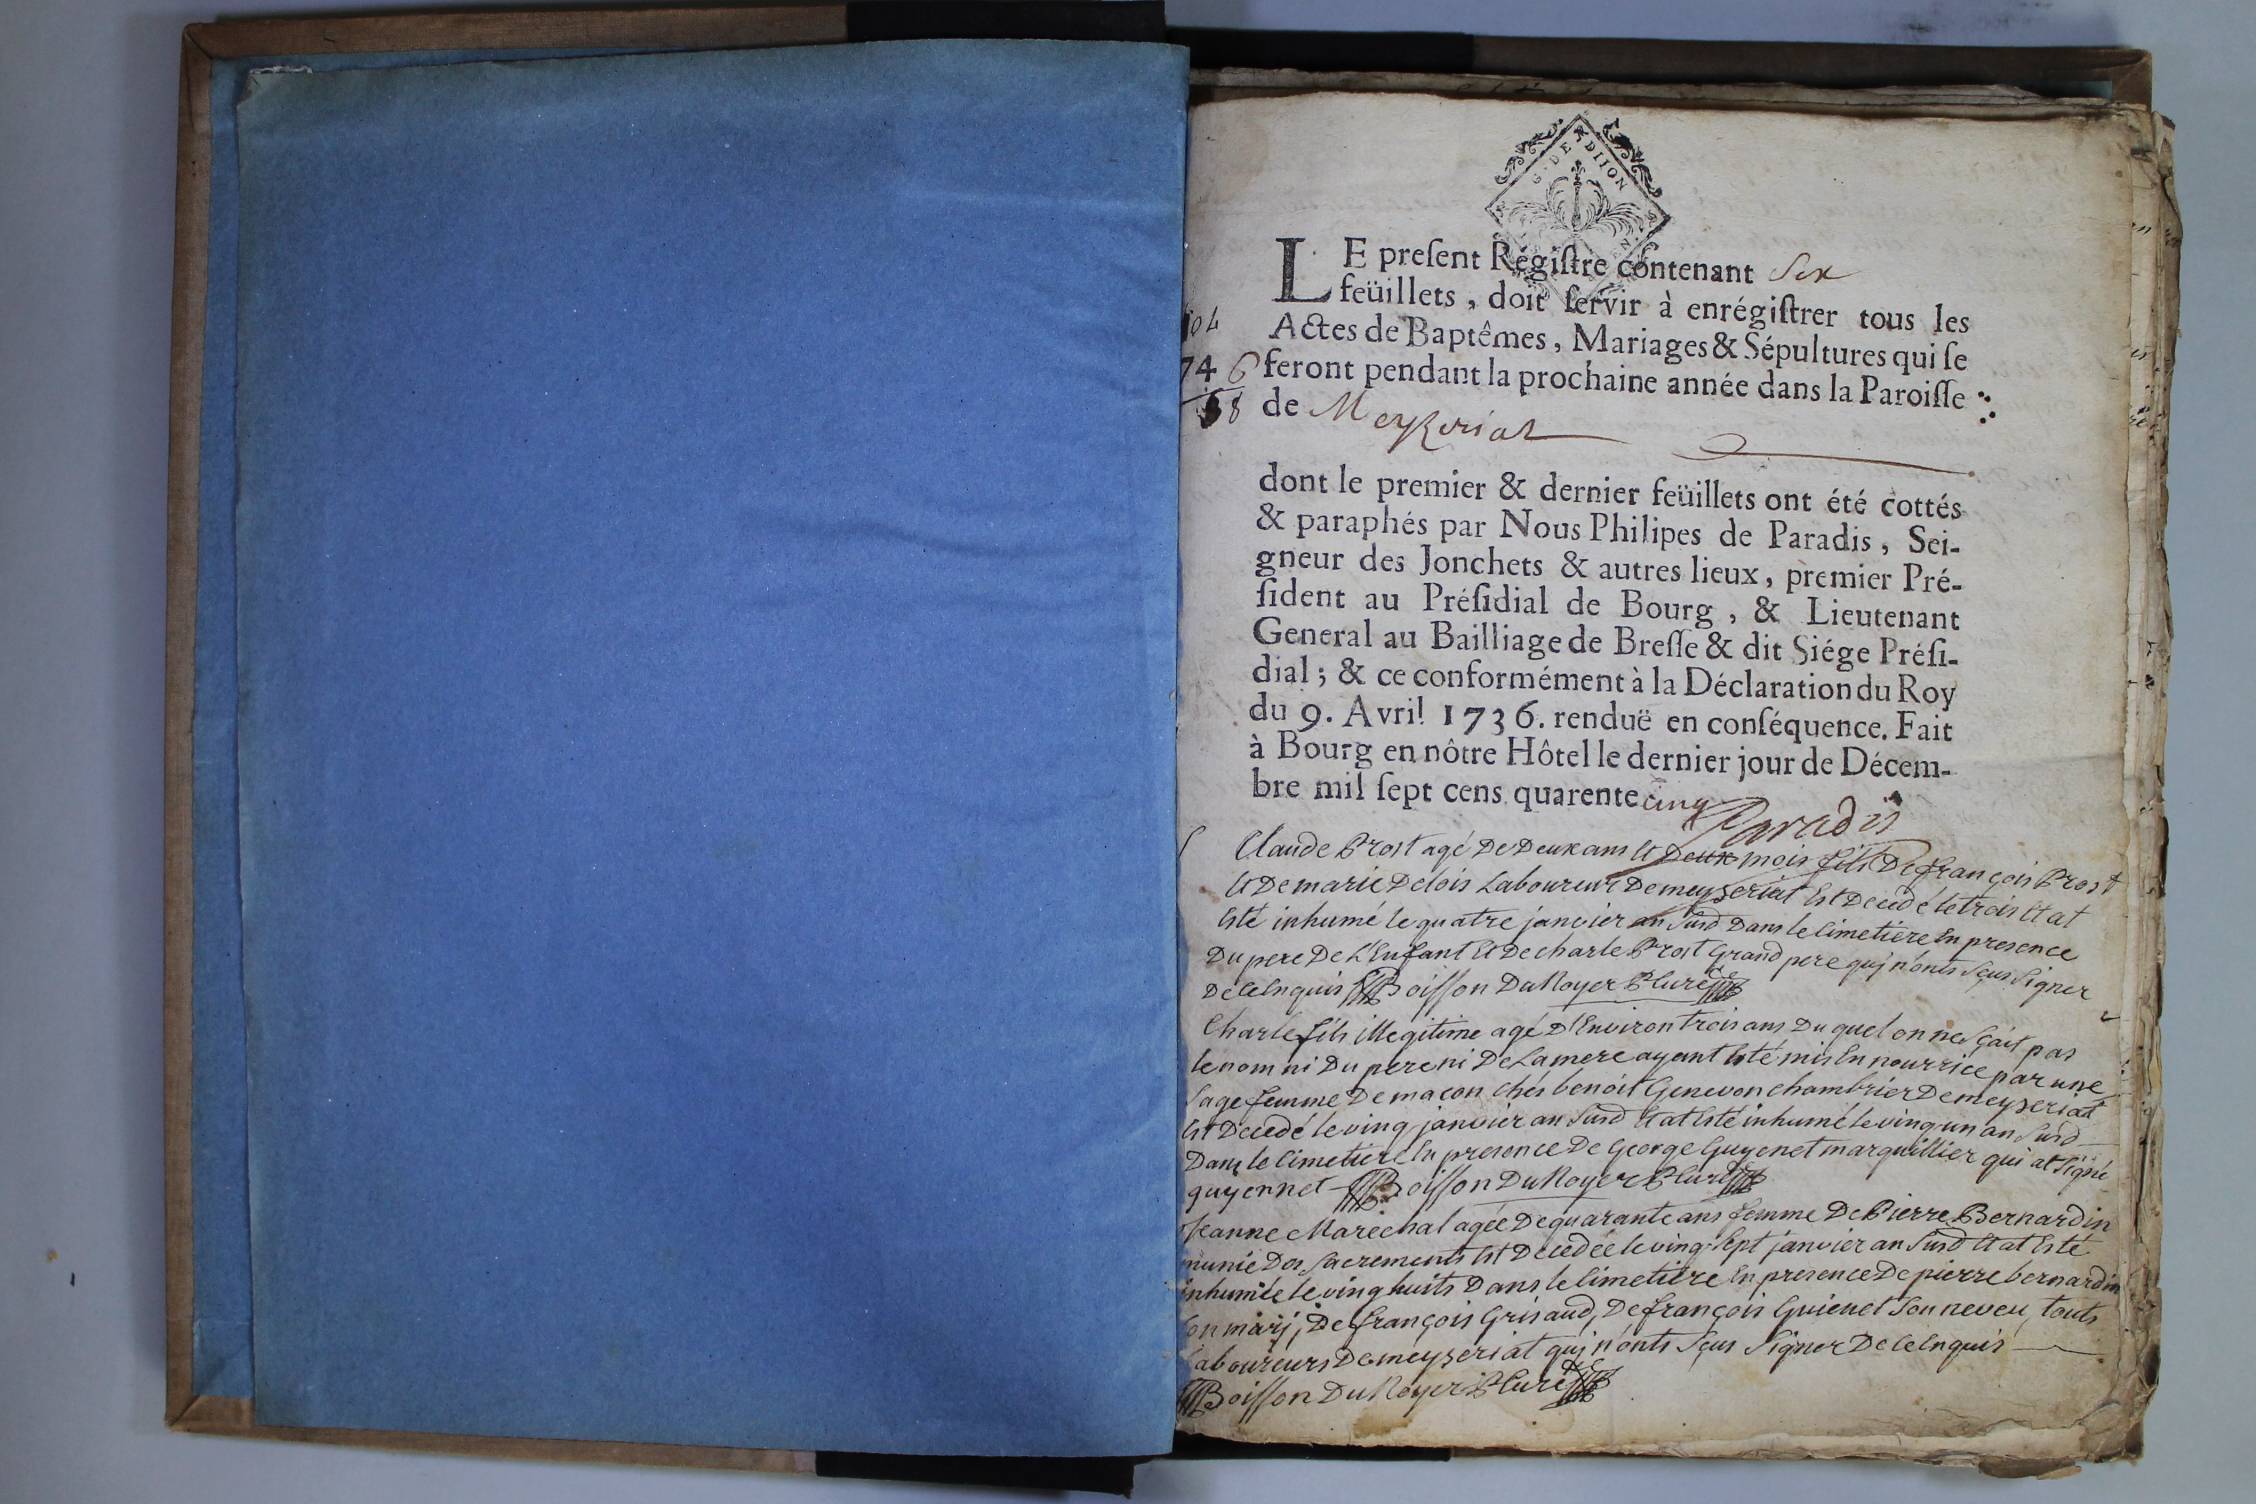 G. DE DIJON
LE preſent Régiſtre contenant Six
feüillets, doit ſervir à enrégiſtrer tous les
Actes de Baptêmes, Mariages & Sépultures qui ſe
feront pendant la prochaine année dans la Paroiſſe
de Meyzeriat
74 6
dont le premier & dernier feüillets ont été cottés
& paraphés par Nous Philipes de Paradis, Sei-
gneur des Jonchets & autres lieux, premier Pré-
ſident au Préſidial de Bourg, & Lieutenant
General au Bailliage de Breſſe & dit Siége Préſi-
dial; & ce conformément à la Déclaration du Roy
du 9. Avril 1736. renduë en conſéquence. Fait
à Bourg en nôtre Hôtel le dernier jour de Décem-
bre mil ſept cens quarente cinq
Paradis
Claude Prost agé De Deux ans Et Deux mois fils De françois Prost
Et De marie Delois Laboureur De meyzeriat Est Decedé le trois Et at
Esté inhumé le quatre janvier an Susd Dans le Cimetiere En presence
Du pere De L'Enfant Et De charle Prost Grand pere quj n'onts Sçus Signer
De ce Enquis Boisson Du Noyer P Curé
Charle fils illegitime agé D'Environ trois ans Du quel on ne Sçait pas
le nom ni Du pere ni De La mere ayant Esté mis En nourrice par une
Sage femme De macon chés benoit Genevon chambrier De meyzeriat
Est Decedé le ving janvier an Susd Et at Esté inhumé le ving un an Susd
Dans le Cimetiere En presence De George Guyenet marguillier qui at Signé
guyennet Boisson Du Noyer P Curé
Jeanne Marechal agée De quarante ans femme De Pierre Bernardin
munie Des Sacrements Est Decedée le ving Sept janvier an Susd Et at Esté
inhumée le ving huits Dans le Cimetiere En presence De pierre bernardin
Son marj, De françois Grisaud, De françois Guienet Son neveu, touts
Laboureurs De meyzeriat quj n'onts Sçus Signer De ce Enquis
Boisson Du Noyer P Curé